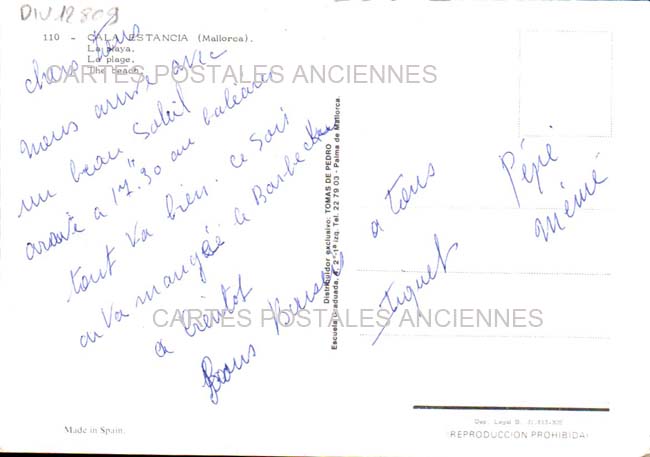 DIV.12809
110 - CALA ESTANCIA (Mallorca).
La playa.
La plage.
The beach.
CARTES POSTALES ANCIENNES
chers tous
nous arrivé avec
un beau Soleil
arrivé a 17.30 au baléares
tout va bien. ce Soir
on va mangée le Barbecue
a bientot
Bons Baisers
a tous
Pépé
mémé
Distribuidor exclusivo: TOMAS DE PEDRO
Escuela Graduada, 2°-1ª Izq. Tel. 22 79 03 - Palma de Mallorca.
CARTES POSTALES ANCIENNES
Made in Spain.
Dep. Legal B.
(REPRODUCCION PROHIBIDA)